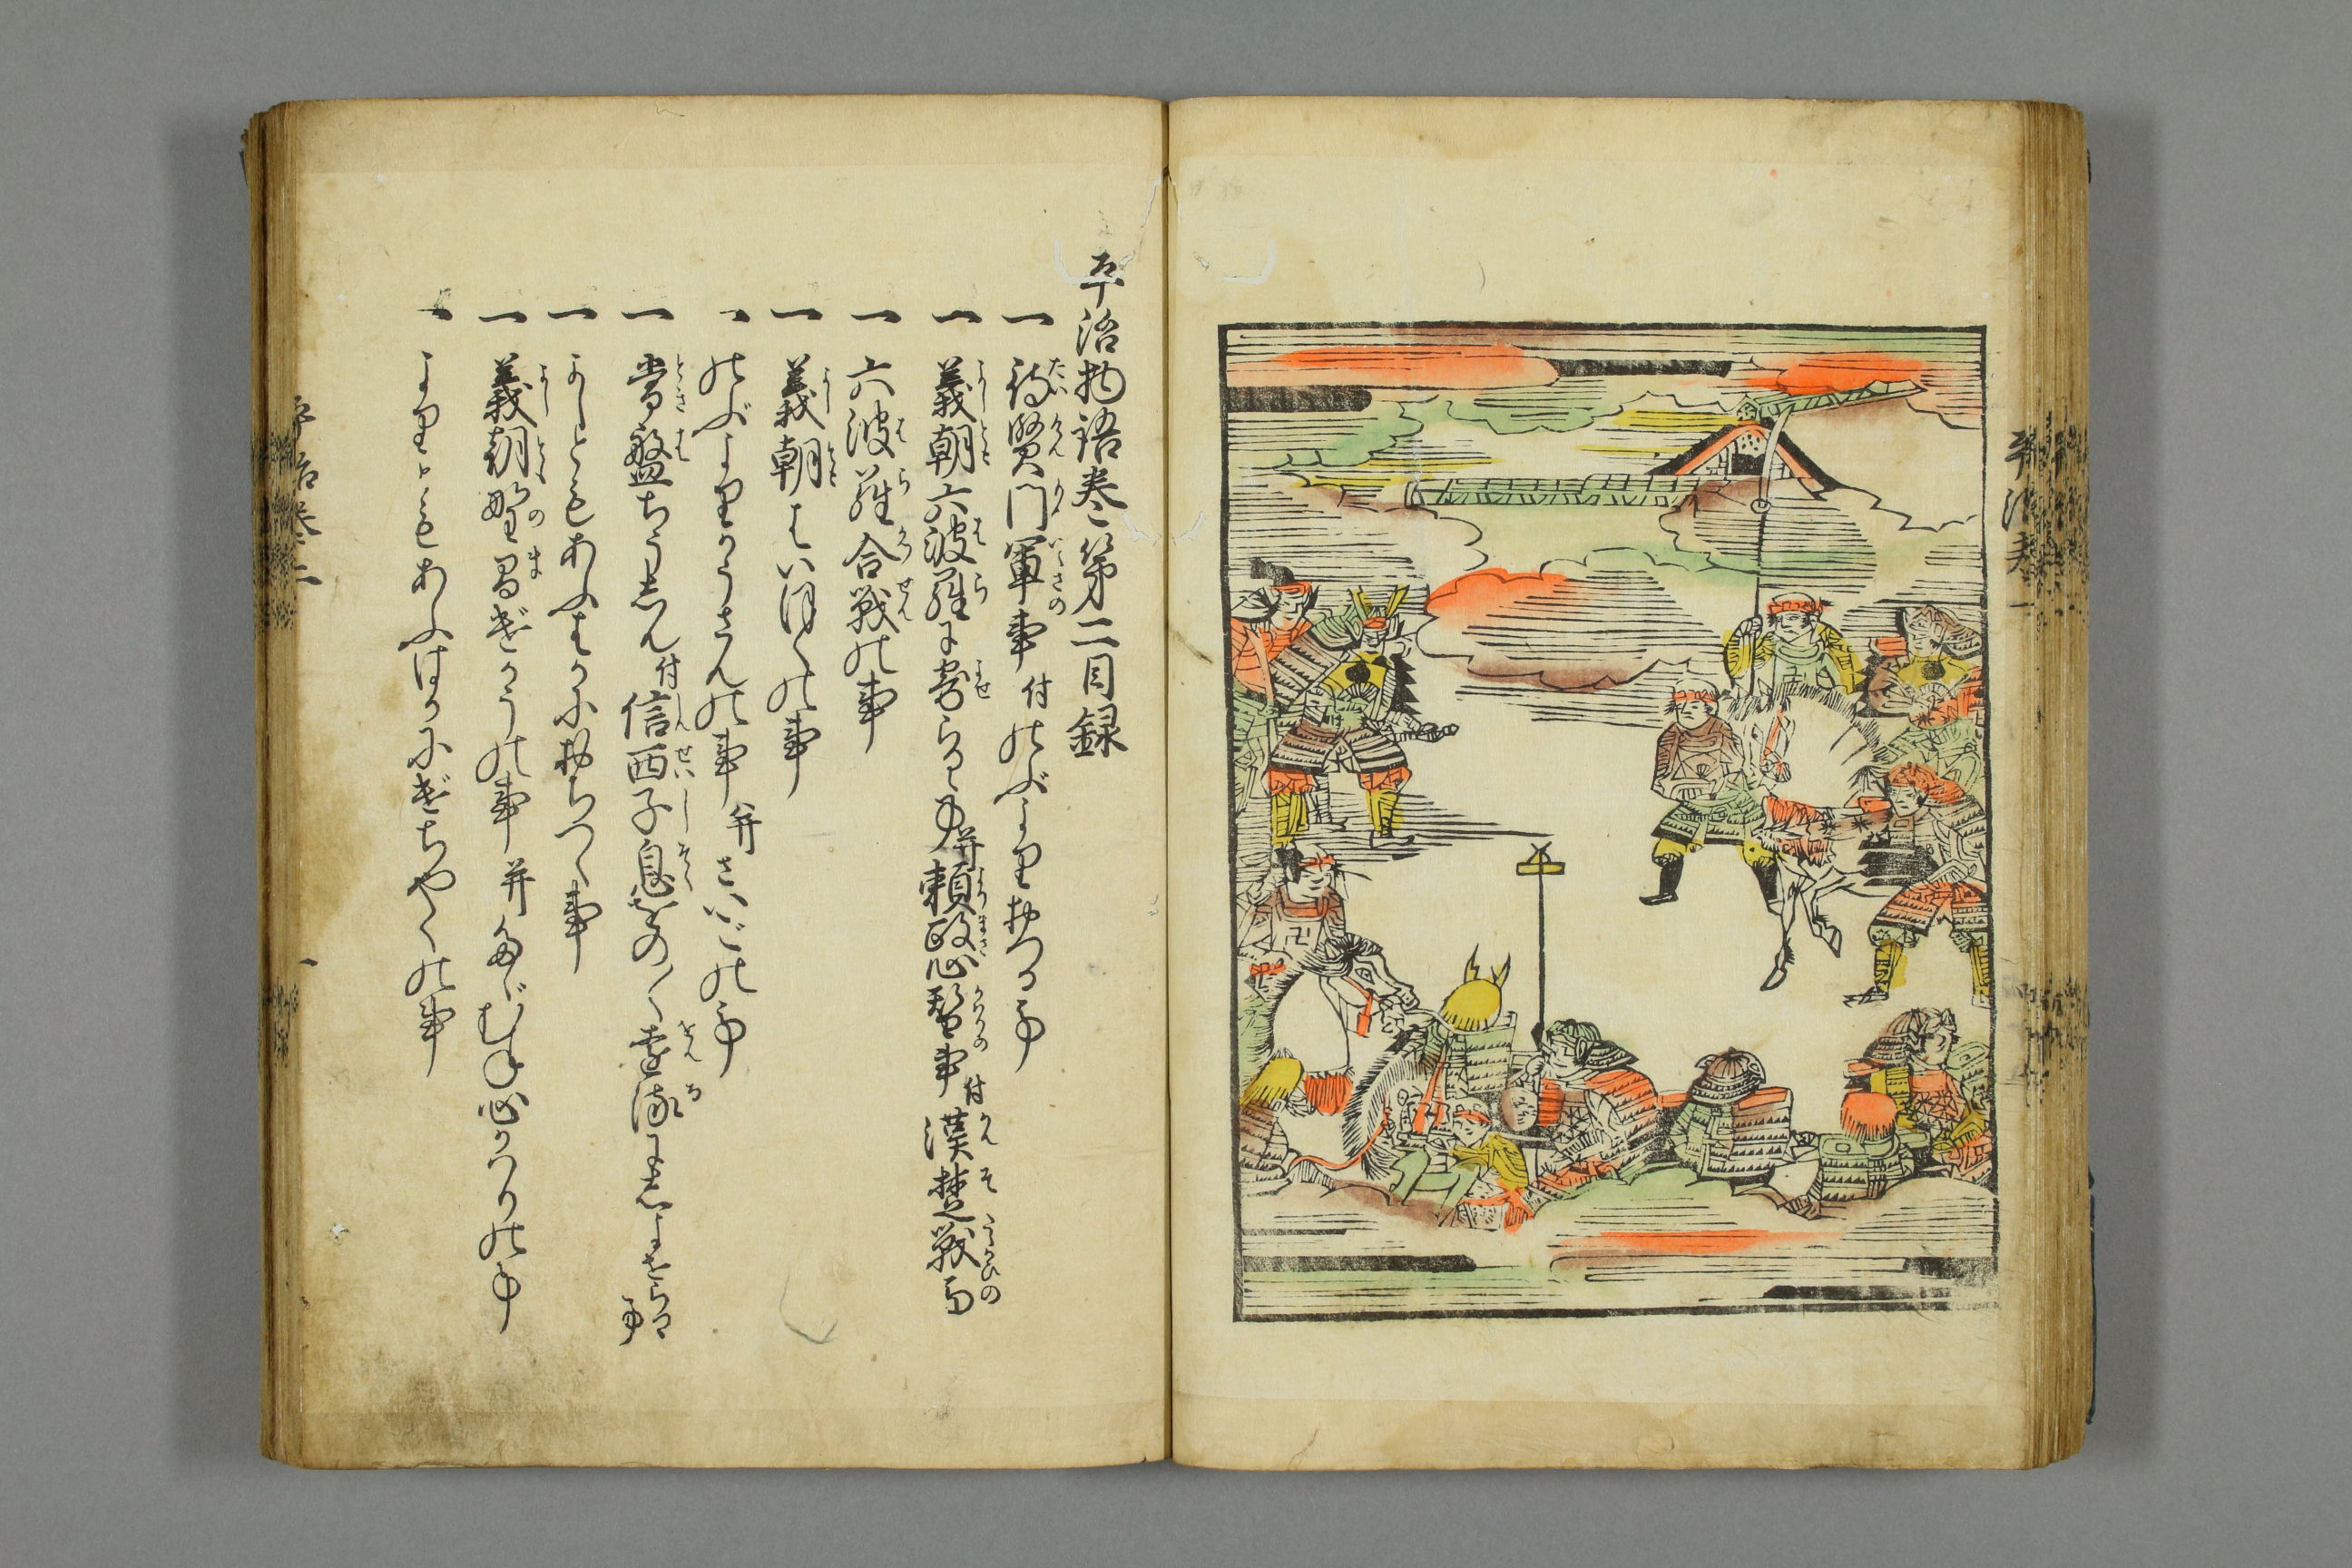 平治巻一
平治物語巻第二目録
一 待賢門軍事付のぶよりおつる事
一 義朝六波羅に寄らるゝ事并頼政心替事付漢楚戦事
一 六波羅合戦の事
一 義朝はいほくの事
一 のぶよりかうさんの事并さいごの事
一 常盤ちうしん付信西子息をの〱遠流にしよせらるゝ事
一 よしともあふはかにおちつく事
一 義朝野間げかうの事并たゞむね心かはりの事
一 よりともあふはかにげちやくの事
平治巻二 一